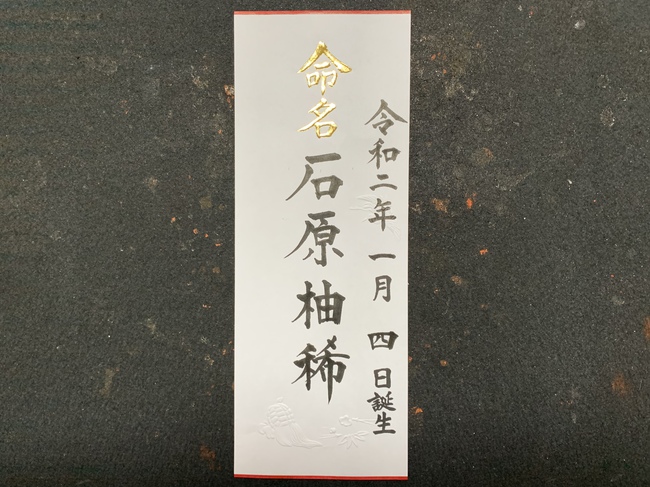 令和二年 一月 四日誕生
命名 石原柚稀